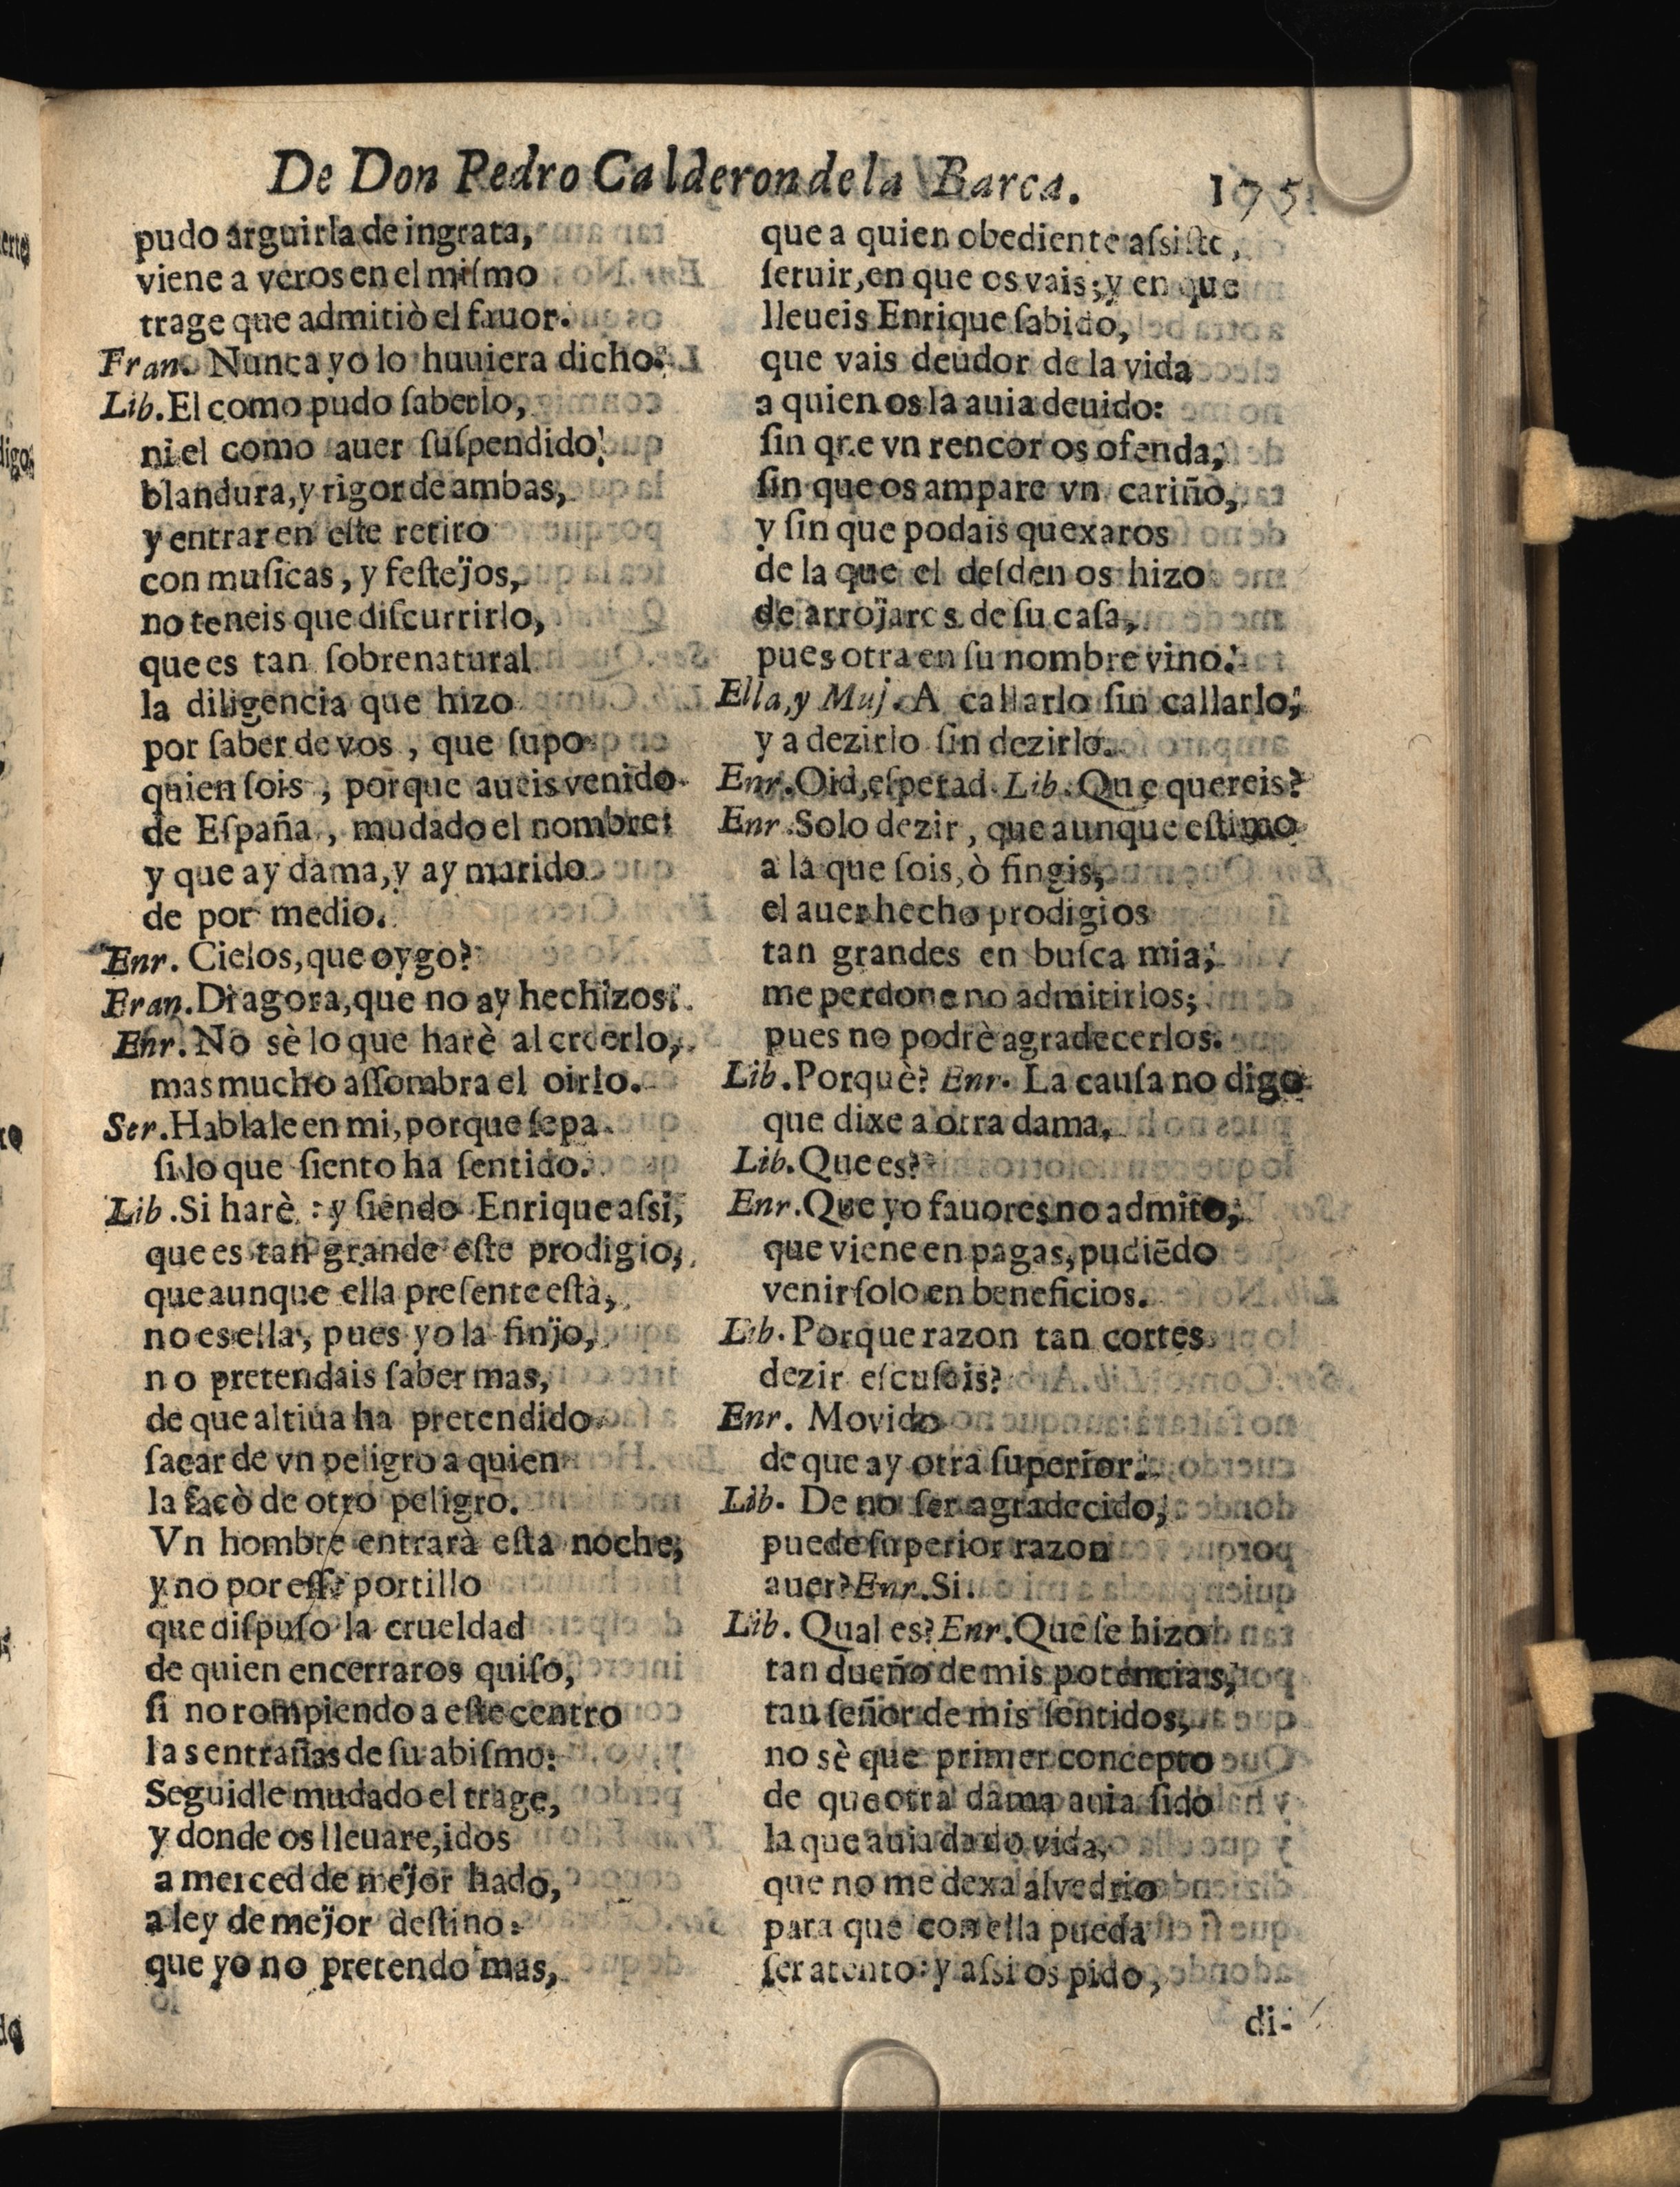 De Don Pedro Calderon de la Barca. 195
pudo arguirla de ingrata,
viene a veros en el miſmo
trage que admitiò el fauor.
Fran. Nunca yo lo huuiera dicho.
Lib. El como pudo ſaberlo,
ni el como auer ſuſpendido
blandura, y rigor de ambas,
y entrar en eſte retiro
con muſicas, y feſtejos,
no teneis que diſcurrirlo,
que es tan ſobrenatural
la diligencia que hizo
por ſaber de vos, que ſupo
quien ſois, porque aueis venido
de Eſpaña, mudado el nombre:
y que ay dama, y ay marido
de por medio.
Enr. Cielos, que oygo?
Fran. Di agora, que no ay hechizos.
Enr. No sè lo que harè al creerlo,
mas mucho aſſombra el oirlo.
Ser. Hablale en mi, porque ſepa
ſi lo que ſiento ha ſentido.
Lib. Si harè: y ſiendo Enrique aſsi,
que es tan grande eſte prodigio,
que aunque ella preſente eſtà,
no es ella, pues yo la finjo,
no pretendais ſaber mas,
de que altiua ha pretendido
ſacar de vn peligro a quien
la ſacò de otro peligro.
Vn hombre entrarà eſta noche;
y no por eſſe portillo
que diſpuſo la crueldad
de quien encerraros quiſo,
ſi no rompiendo a eſte centro
las entrañas de ſu abiſmo:
Seguidle mudado el trage,
y donde os lleuare, idos
a merced de mejor hado,
a ley de mejor deſtino:
que yo no pretendo mas,
que a quien obediente aſsiſte,
ſeruir, en que os vais; y en que
lleueis Enrique ſabido,
que vais deudor de la vida
a quien os la auia deuido:
ſin qr.e vn rencor os ofenda,
ſin que os ampare vn cariño,
y ſin que podais quexaros
de la que el deſden os hizo
de arrojaros de ſu caſa,
pues otra en ſu nombre vino.
Ella, y Muj. A callarlo ſin callarlo,
y a dezirlo ſin dezirlo.
Enr. Oid, eſperad. Lib. Que quereis?
Enr. Solo dezir, que aunque eſtimo
a la que ſois, ò fingis,
el auer hecho prodigios
tan grandes en buſca mia,
me perdone no admitirlos;
pues no podrè agradecerlos.
Lib. Porquè? Enr. La cauſa no digo
que dixe a otra dama,
Lib. Que es?
Enr. Que yo fauores no admito,
que viene en pagas, pudiẽdo
venir ſolo en beneficios.
Lib. Porque razon tan cortes
dezir eſcuſois?
Enr. Movido
de que ay otra ſuperior.
Lib. De no ſer agradecido,
puede ſuperior razon
auer? Enr. Si.
Lib. Qual es? Enr. Que ſe hizo
tan dueño de mis potencias,
tan ſeñor de mis ſentidos,
no sè que primer concepto
de que otra dama auia ſido
la que auia dado vida,
que no me dexa alvedrio
para que con ella pueda
ſer atento: y aſsi os pido,
di-